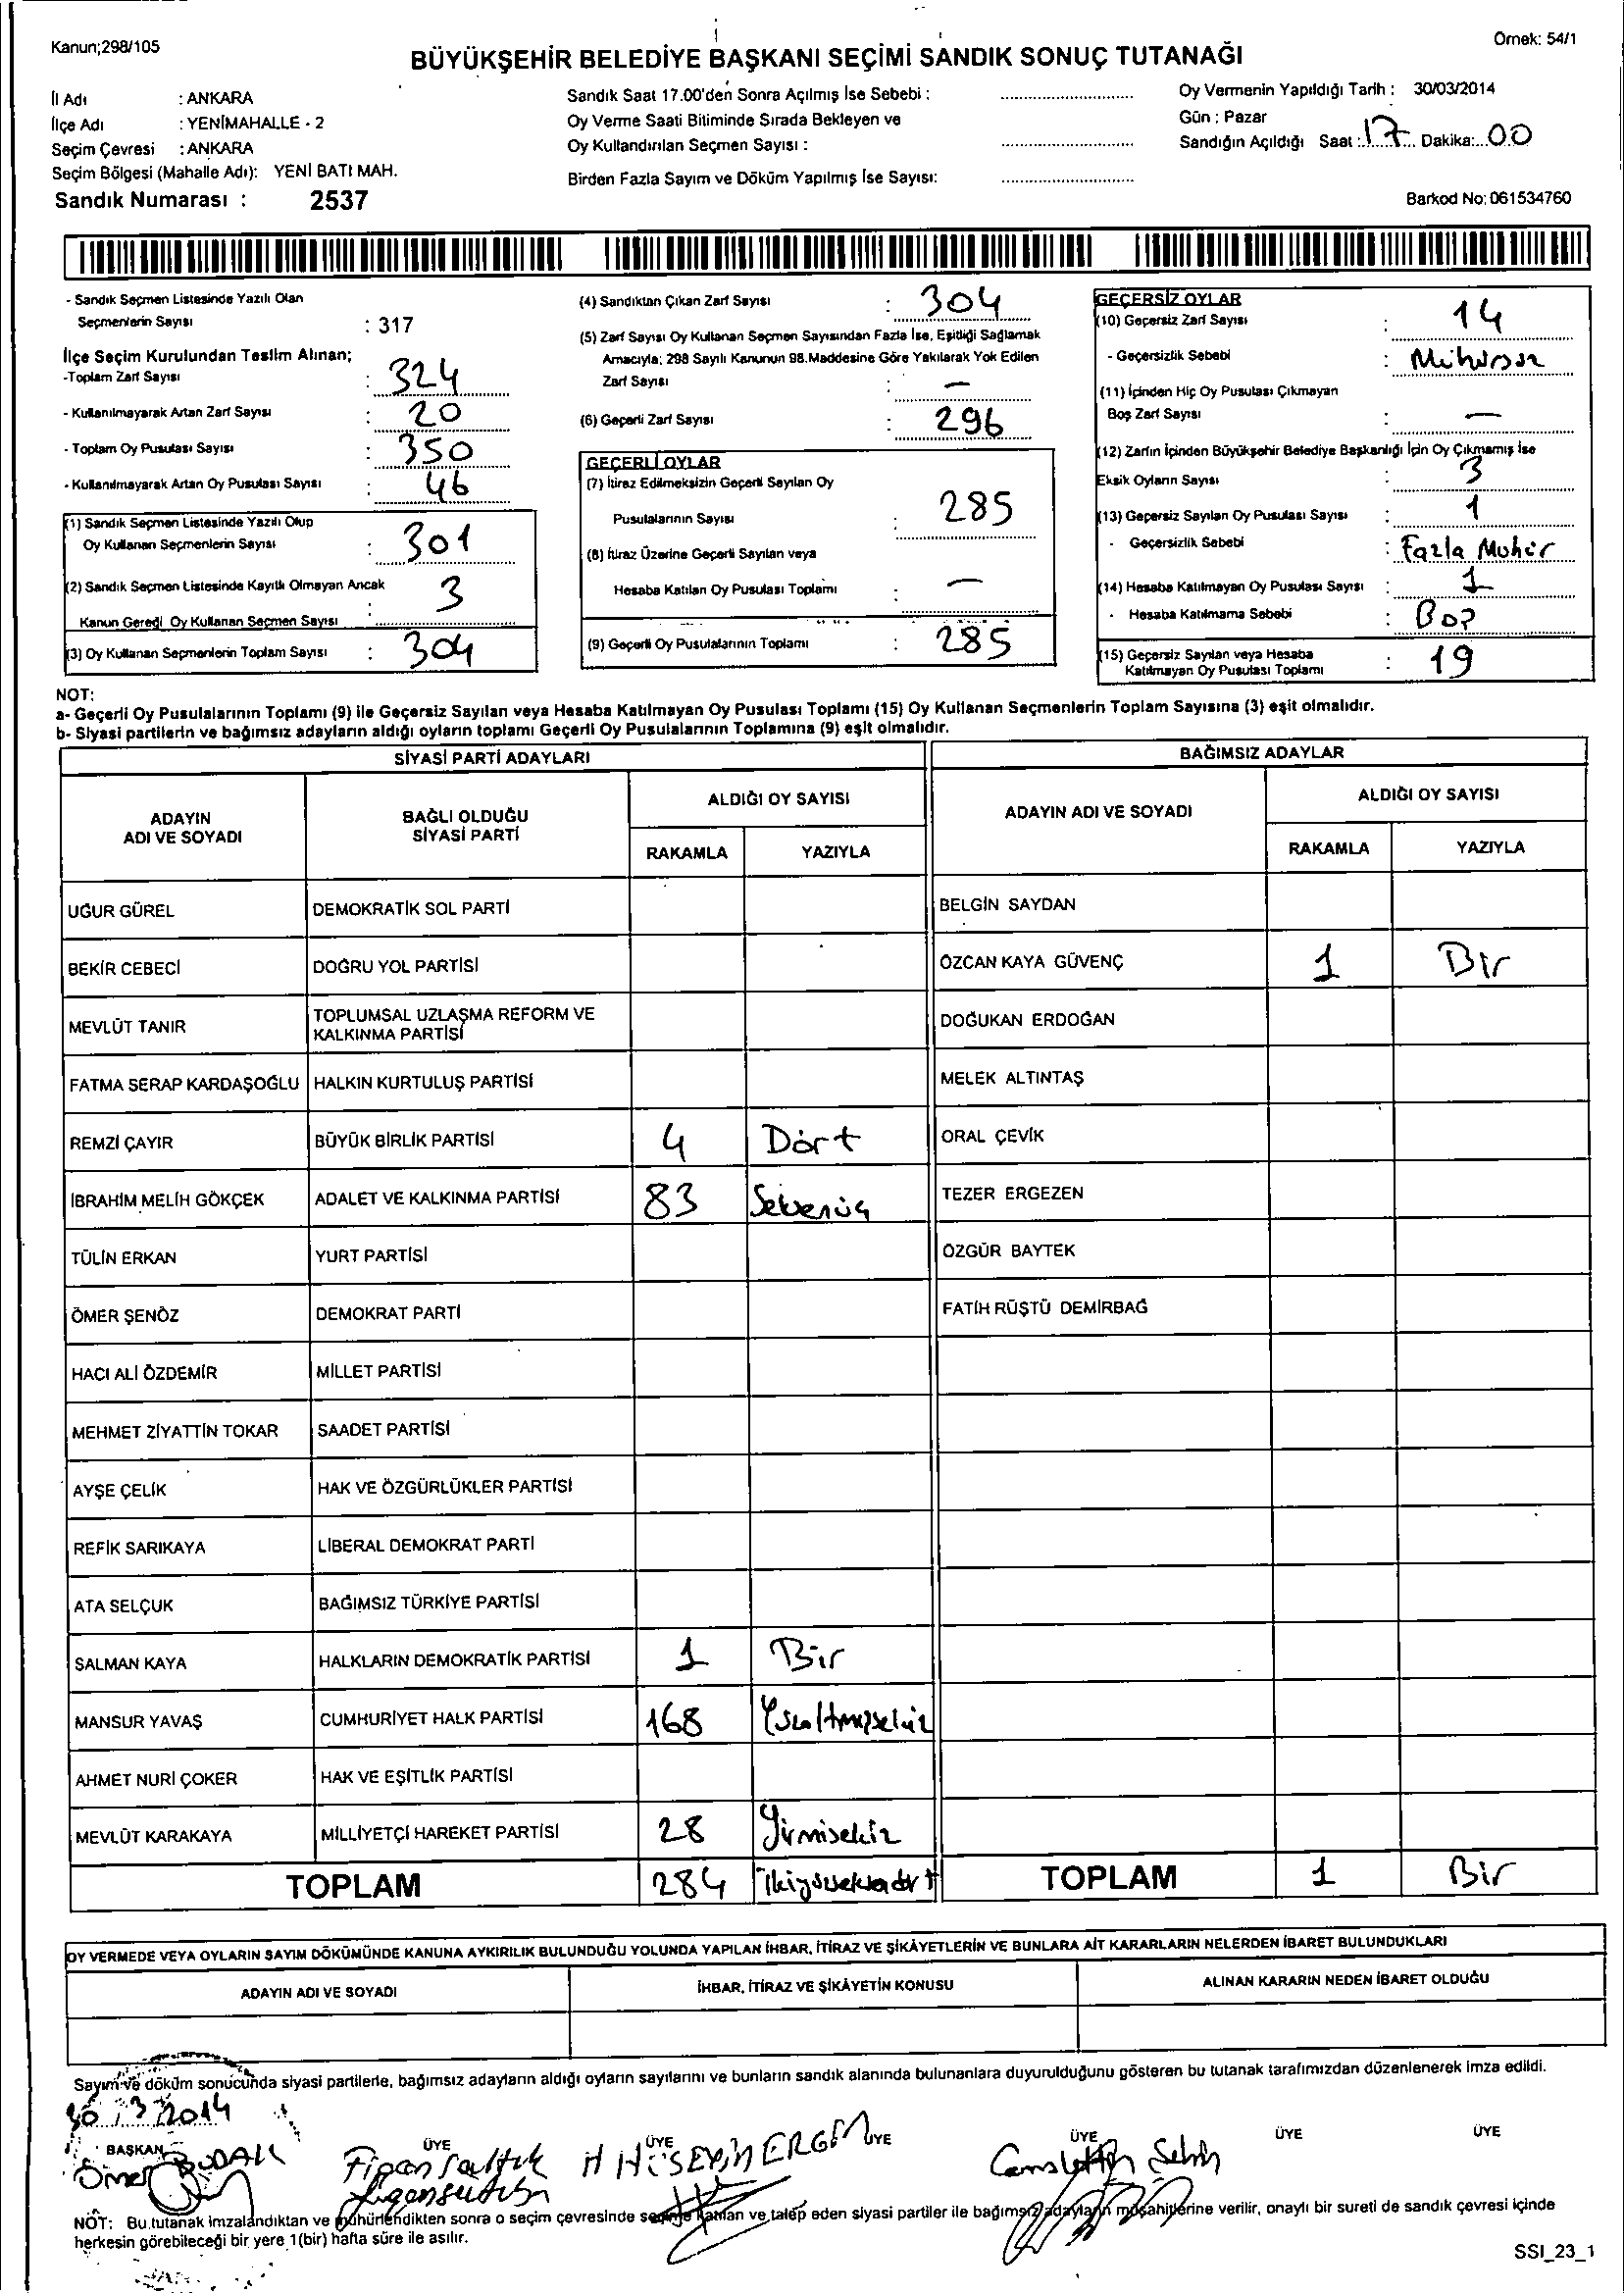 Kanun;298/105
Örnek: 54/1
BÜYÜKŞEHİR BELEDİYE BAŞKANI SEÇİMİ SANDIK SONUÇ TUTANAĞI
İl Adı : ANKARA
İlçe Adı : YENİMAHALLE - 2
Seçim Çevresi : ANKARA
Seçim Bölgesi (Mahalle Adı): YENİ BATI MAH.
Sandık Numarası : 2537
Sandık Saat 17.00'den Sonra Açılmış İse Sebebi :
Oy Verme Saati Bitiminde Sırada Bekleyen ve
Oy Kullandırılan Seçmen Sayısı :
Birden Fazla Sayım ve Döküm Yapılmış İse Sayısı:
Oy Vermenin Yapıldığı Tarih : 30/03/2014
Gün : Pazar
Sandığın Açıldığı Saat : 17 Dakika: 00
Barkod No: 061534760
- Sandık Seçmen Listesinde Yazılı Olan
Seçmenlerin Sayısı : 317
İlçe Seçim Kurulundan Teslim Alınan;
-Toplam Zarf Sayısı : 324
- Kullanılmayarak Artan Zarf Sayısı : 20
- Toplam Oy Pusulası Sayısı : 350
- Kullanılmayarak Artan Oy Pusulası Sayısı : 46
(1) Sandık Seçmen Listesinde Yazılı Olup
Oy Kullanan Seçmenlerin Sayısı : 301
(2) Sandık Seçmen Listesinde Kayıtlı Olmayan Ancak
Kanun Gereği Oy Kullanan Seçmen Sayısı : 3
(3) Oy Kullanan Seçmenlerin Toplam Sayısı : 304
(4) Sandıktan Çıkan Zarf Sayısı : 304
(5) Zarf Sayısı Oy Kullanan Seçmen Sayısından Fazla İse, Eşitliği Sağlamak
Amacıyla; 298 Sayılı Kanunun 98.Maddesine Göre Yakılarak Yok Edilen
Zarf Sayısı : —
(6) Geçerli Zarf Sayısı : 296
GEÇERLİ OYLAR
(7) İtiraz Edilmeksizin Geçerli Sayılan Oy
Pusulalarının Sayısı : 285
(8) İtiraz Üzerine Geçerli Sayılan veya
Hesaba Katılan Oy Pusulası Toplamı : —
(9) Geçerli Oy Pusulalarının Toplamı : 285
GEÇERSİZ OYLAR
(10) Geçersiz Zarf Sayısı : 14
- Geçersizlik Sebebi : Mühürsüz
(11) İçinden Hiç Oy Pusulası Çıkmayan
Boş Zarf Sayısı : —
(12) Zarfın İçinden Büyükşehir Belediye Başkanlığı İçin Oy Çıkmamış İse
Eksik Oyların Sayısı : 3
(13) Geçersiz Sayılan Oy Pusulası Sayısı : 1
- Geçersizlik Sebebi : Fazla Mühür
(14) Hesaba Katılmayan Oy Pusulası Sayısı : 1
- Hesaba Katılmama Sebebi : Boş
(15) Geçersiz Sayılan veya Hesaba
Katılmayan Oy Pusulası Toplamı : 19
NOT:
a- Geçerli Oy Pusulalarının Toplamı (9) ile Geçersiz Sayılan veya Hesaba Katılmayan Oy Pusulası Toplamı (15) Oy Kullanan Seçmenlerin Toplam Sayısına (3) eşit olmalıdır.
b- Siyasi partilerin ve bağımsız adayların aldığı oyların toplamı Geçerli Oy Pusulalarının Toplamına (9) eşit olmalıdır.
SİYASİ PARTİ ADAYLARI
ADAYIN ADI VE SOYADI
BAĞLI OLDUĞU SİYASİ PARTİ
ALDIĞI OY SAYISI
RAKAMLA YAZIYLA
UĞUR GÜREL DEMOKRATİK SOL PARTİ
BEKİR CEBECİ DOĞRU YOL PARTİSİ
MEVLÜT TANIR TOPLUMSAL UZLAŞMA REFORM VE KALKINMA PARTİSİ
FATMA SERAP KARDAŞOĞLU HALKIN KURTULUŞ PARTİSİ
REMZİ ÇAYIR BÜYÜK BİRLİK PARTİSİ 4 Dört
İBRAHİM MELİH GÖKÇEK ADALET VE KALKINMA PARTİSİ 83 Seksenüç
TÜLİN ERKAN YURT PARTİSİ
ÖMER ŞENÖZ DEMOKRAT PARTİ
HACI ALİ ÖZDEMİR MİLLET PARTİSİ
MEHMET ZİYATTİN TOKAR SAADET PARTİSİ
AYŞE ÇELİK HAK VE ÖZGÜRLÜKLER PARTİSİ
REFİK SARIKAYA LİBERAL DEMOKRAT PARTİ
ATA SELÇUK BAĞIMSIZ TÜRKİYE PARTİSİ
SALMAN KAYA HALKLARIN DEMOKRATİK PARTİSİ 1 Bir
MANSUR YAVAŞ CUMHURİYET HALK PARTİSİ 168 Yüzaltmışsekiz
AHMET NURİ ÇOKER HAK VE EŞİTLİK PARTİSİ
MEVLÜT KARAKAYA MİLLİYETÇİ HAREKET PARTİSİ 28 Yirmisekiz
TOPLAM 284 İkiyüzseksendört
BAĞIMSIZ ADAYLAR
ADAYIN ADI VE SOYADI
ALDIĞI OY SAYISI
RAKAMLA YAZIYLA
BELGİN SAYDAN
ÖZCAN KAYA GÜVENÇ 1 Bir
DOĞUKAN ERDOĞAN
MELEK ALTINTAŞ
ORAL ÇEVİK
TEZER ERGEZEN
ÖZGÜR BAYTEK
FATİH RÜŞTÜ DEMİRBAĞ
TOPLAM 1 Bir
OY VERMEDE VEYA OYLARIN SAYIM DÖKÜMÜNDE KANUNA AYKIRILIK BULUNDUĞU YOLUNDA YAPILAN İHBAR, İTİRAZ VE ŞİKÂYETLERİN VE BUNLARA AİT KARARLARIN NELERDEN İBARET BULUNDUKLARI
ADAYIN ADI VE SOYADI
İHBAR, İTİRAZ VE ŞİKÂYETİN KONUSU
ALINAN KARARIN NEDEN İBARET OLDUĞU
Sayım ve döküm sonucunda siyasi partilerle, bağımsız adayların aldığı oyların sayılarını ve bunların sandık alanında bulunanlara duyurulduğunu gösteren bu tutanak tarafımızdan düzenlenerek imza edildi.
30/3/2014
BAŞKAN ÜYE ÜYE ÜYE ÜYE ÜYE ÜYE
Ömer BUDAK
H HÜSEYİN ERGİN
NOT: Bu tutanak imzalandıktan ve mühürlendikten sonra o seçim çevresinde seçime katılan ve talep eden siyasi partiler ile bağımsız adayların müşahitlerine verilir, onaylı bir sureti de sandık çevresi içinde
herkesin görebileceği bir yere 1(bir) hafta süre ile asılır.
SSI_23_1